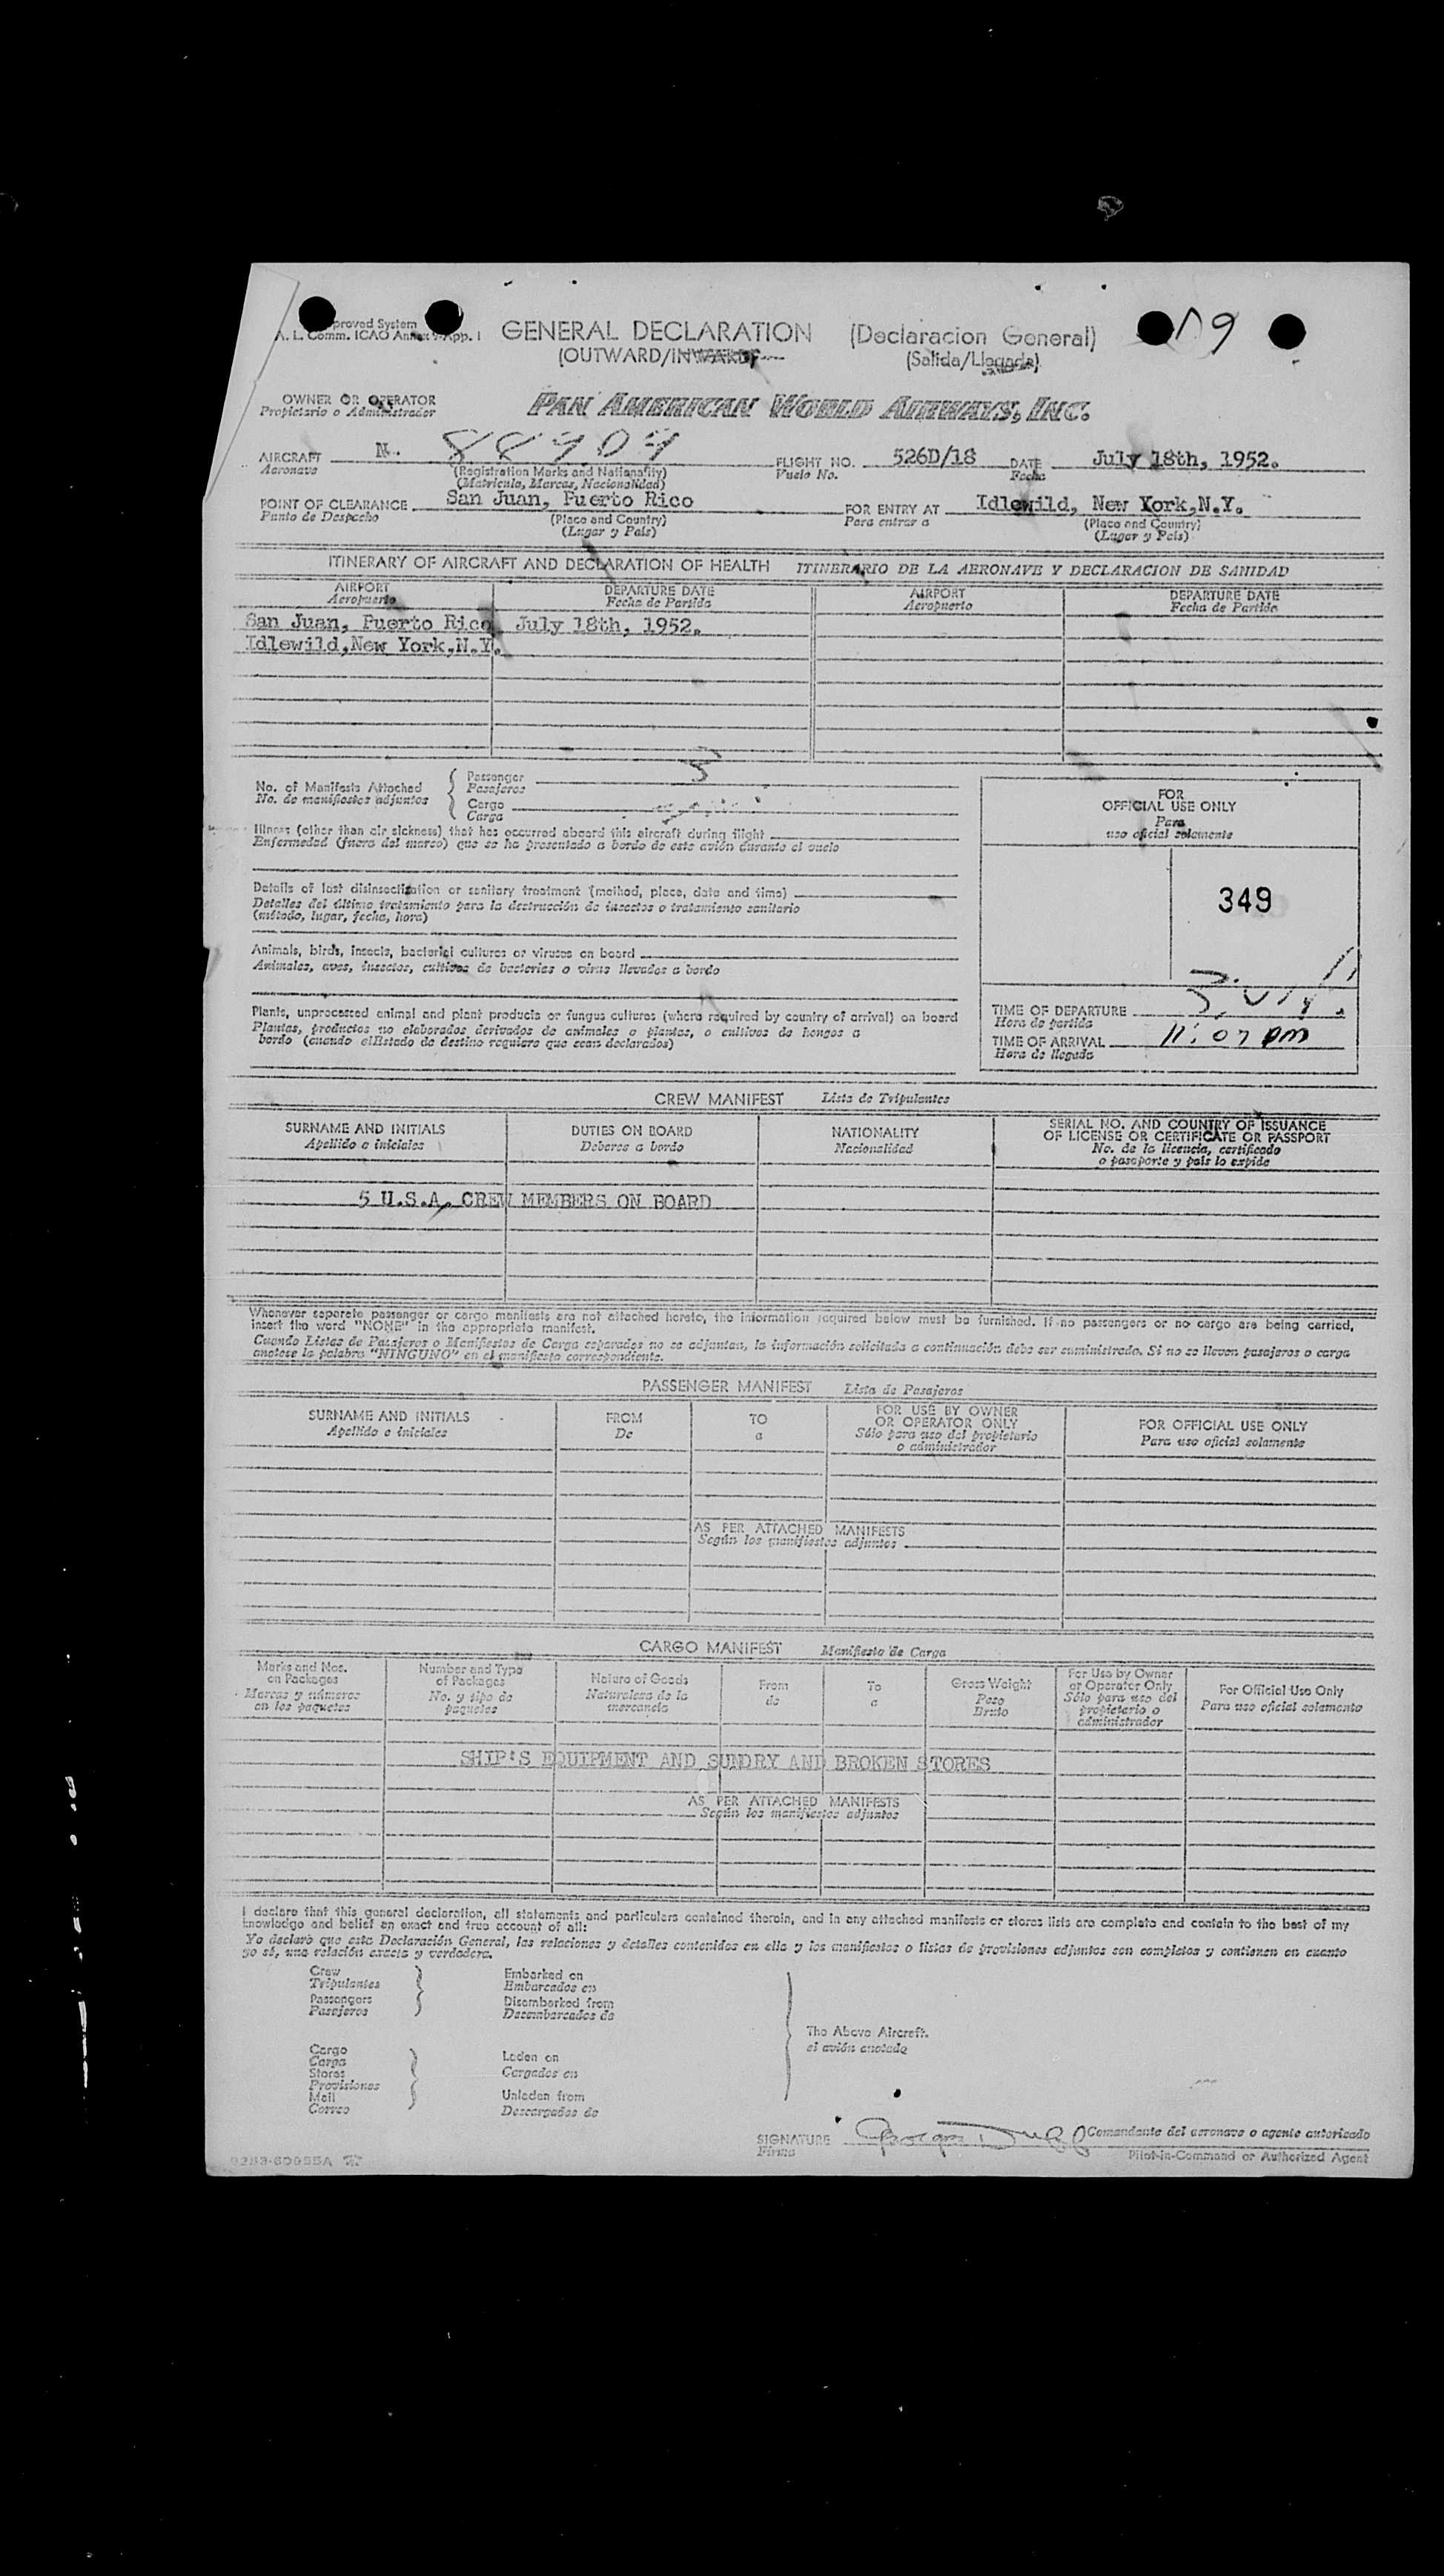 proved System
A. L. Comm. ICAO Annex 9-App. I
GENERAL DECLARATION (Declaracion General)
(OUTWARD/INWARD) (Salida/Llegada)
19
OWNER OR OPERATOR
Propietario o Administrador
PAN AMERICAN WORLD AIRWAYS, INC.
AIRCRAFT N. 88909 FLIGHT NO. 526D/18 DATE July 18th, 1952.
Aeronave (Registration Marks and Nationality) Vuelo No. Fecha
(Matricula, Marcas, Nacionalidad)
POINT OF CLEARANCE San Juan, Puerto Rico FOR ENTRY AT Idlewild, New York,N.Y.
Punto de Despacho (Place and Country) Para entrar a (Place and Country)
(Lugar y País) (Lugar y País)
ITINERARY OF AIRCRAFT AND DECLARATION OF HEALTH ITINERARIO DE LA AERONAVE Y DECLARACION DE SANIDAD
AIRPORT DEPARTURE DATE AIRPORT DEPARTURE DATE
Aeropuerto Fecha de Partida Aeropuerto Fecha de Partida
San Juan, Puerto Rico July 18th, 1952.
Idlewild,New York,N.Y.
No. of Manifests Attached
No. de manifiestos adjuntos
Passenger 3
Pasajeros
Cargo
Carga
Illness (other than air sickness) that has occurred aboard this aircraft during flight
Enfermedad (fuera del mareo) que se ha presentado a bordo de este avión durante el vuelo
Details of last disinsectisation or sanitary treatment (method, place, date and time)
Detalles del último tratamiento para la destrucción de insectos o tratamiento sanitario
(método, lugar, fecha, hora)
Animals, birds, insects, bacterial cultures or viruses on board
Animales, aves, insectos, cultivos de bacterias o virus llevados a bordo
Plants, unprocessed animal and plant products or fungus cultures (where required by country of arrival) on board
Plantas, productos no elaborados derivados de animales o plantas, o cultivos de hongos a
bordo (cuando el Estado de destino requiera que sean declarados)
FOR
OFFICIAL USE ONLY
Para
uso oficial solamente
349
TIME OF DEPARTURE
Hora de partida
TIME OF ARRIVAL 11:07 pm
Hora de llegada
CREW MANIFEST Lista de Tripulantes
SURNAME AND INITIALS DUTIES ON BOARD NATIONALITY SERIAL NO. AND COUNTRY OF ISSUANCE
OF LICENSE OR CERTIFICATE OR PASSPORT
Apellido e iniciales Deberes a bordo Nacionalidad No. de la licencia, certificado
o pasaporte y país lo expide
5 U.S.A. CREW MEMBERS ON BOARD
Whenever separate passenger or cargo manifests are not attached hereto, the information required below must be furnished. If no passengers or no cargo are being carried,
insert the word "NONE" in the appropriate manifest.
Cuando Listas de Pasajeros o Manifiestos de Carga separados no se adjuntan, la información solicitada a continuación debe ser suministrada. Si no se llevan pasajeros o carga
anotese la palabra "NINGUNO" en el manifiesto correspondiente.
PASSENGER MANIFEST Lista de Pasajeros
SURNAME AND INITIALS FROM TO FOR USE BY OWNER
OR OPERATOR ONLY FOR OFFICIAL USE ONLY
Apellido e iniciales De a Sólo para uso del propietario
o administrador Para uso oficial solamente
AS PER ATTACHED MANIFESTS
Según los manifiestos adjuntos
CARGO MANIFEST Manifiesto de Carga
Marks and Nos.
on Packages
Marcas y números
en los paquetes
Number and Type
of Packages
No. y tipo de
paquetes
Nature of Goods
Naturaleza de la
mercancía
From
de
To
a
Gross Weight
Peso
Bruto
For Use by Owner
or Operator Only
Sólo para uso del
propietario o
administrador
For Official Use Only
Para uso oficial solamente
SHIP'S EQUIPMENT AND SUNDRY AND BROKEN STORES
AS PER ATTACHED MANIFESTS
Según los manifiestos adjuntos
I declare that this general declaration, all statements and particulars contained therein, and in any attached manifests or stores lists are complete and contain to the best of my
knowledge and belief an exact and true account of all:
Yo declaró que esta Declaración General, las relaciones y detalles contenidos en ella y los manifiestos o listas de provisiones adjuntos son completos y contienen en cuanto
yo sé, una relación exacta y verdadera.
Crew
Tripulantes
Passengers
Pasajeros
Embarked on
Embarcados en
Disembarked from
Desembarcados de
Cargo
Carga
Stores
Provisiones
Mail
Correo
Laden on
Cargados en
Unladen from
Descargados de
The Above Aircraft.
el avión anotado
SIGNATURE Comandante del aeronave o agente autorizado
Firma Pilot-in-Command or Authorized Agent